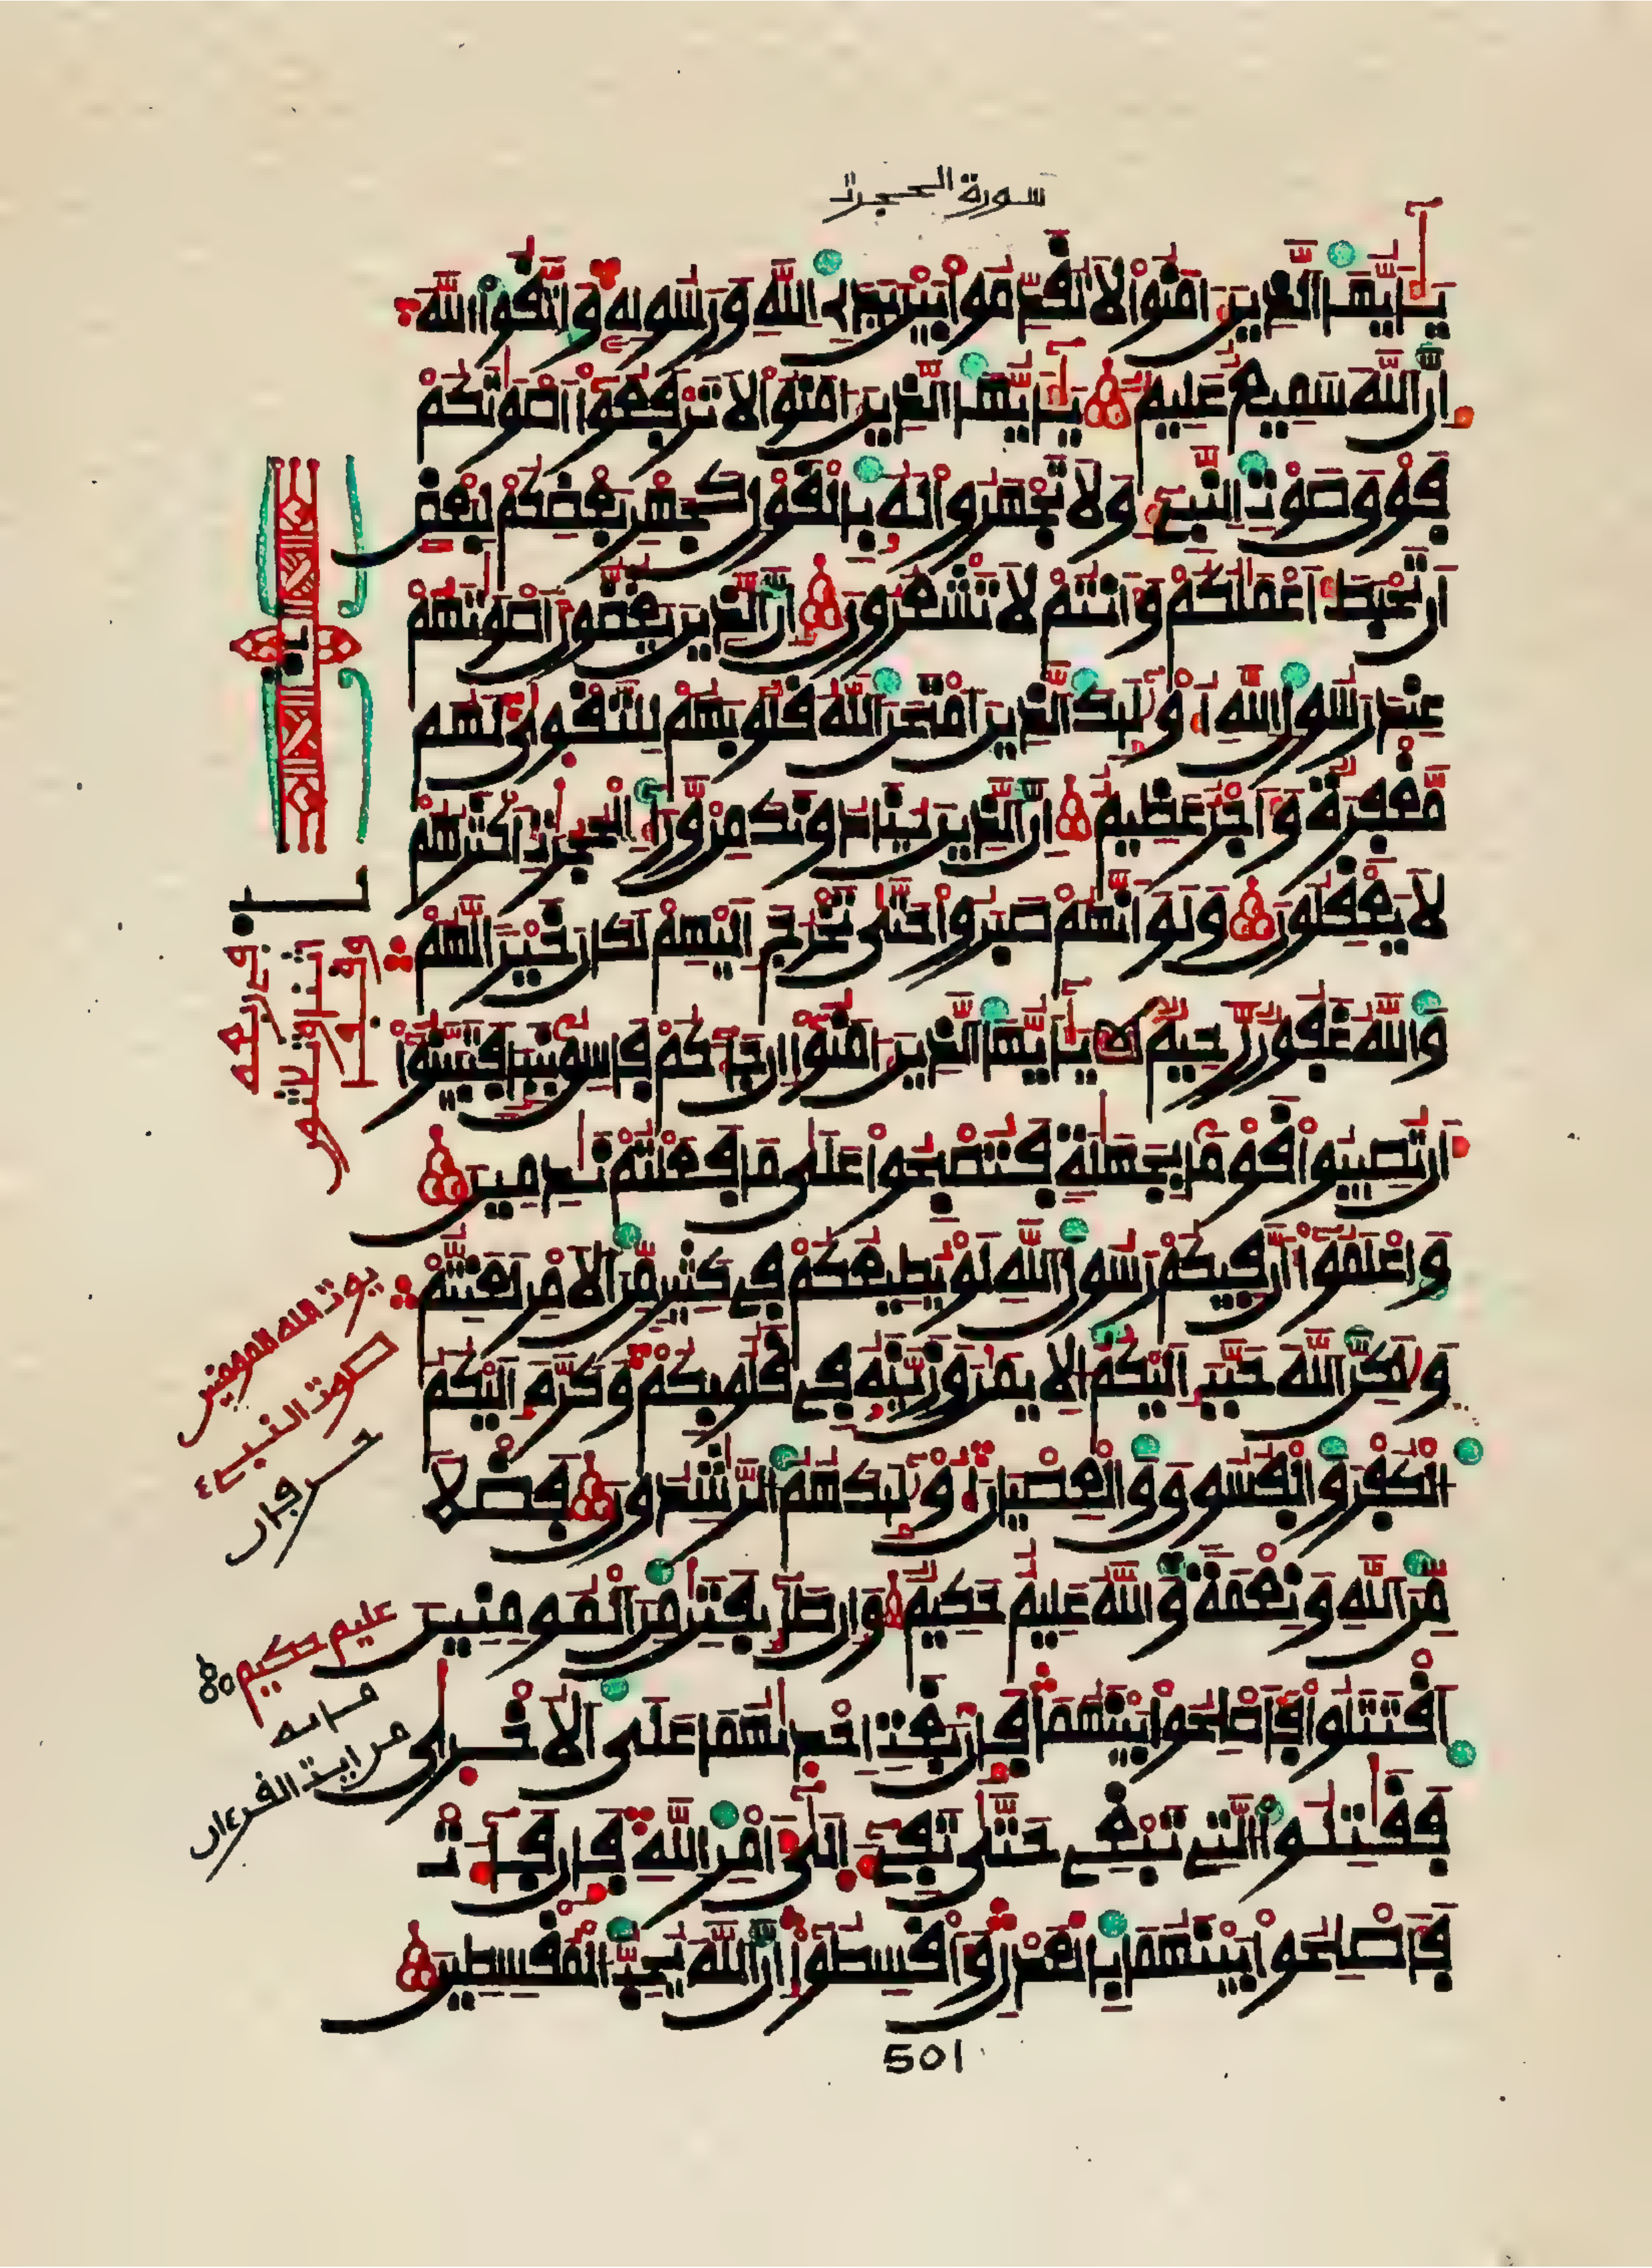 سورة الحجرت
يَٰأَيُّهَا الذِينَ ءَامَنُوا لَا تُقَدِّمُوا بَيْنَ يَدَيِ اللَّهِ وَرَسُولِهِ وَاتَّقُوا اللَّهَ
إِنَّ اللَّهَ سَمِيعٌ عَلِيمٌ يَٰأَيُّهَا الذِينَ ءَامَنُوا لَا تَرْفَعُوا أَصْوَٰتَكُمْ
فَوْقَ صَوْتِ النَّبِيءِ وَلَا تَجْهَرُوا لَهُ بِالْقَوْلِ كَجَهْرِ بَعْضِكُمْ لِبَعْضٍ
أَن تَحْبَطَ أَعْمَٰلُكُمْ وَأَنتُمْ لَا تَشْعُرُونَ إِنَّ الذِينَ يَغُضُّونَ أَصْوَٰتَهُمْ
عِندَ رَسُولِ اللَّهِ أُوْلَٰئِكَ الذِينَ امْتَحَنَ اللَّهُ قُلُوبَهُمْ لِلتَّقْوَىٰ لَهُم
مَّغْفِرَةٌ وَأَجْرٌ عَظِيمٌ إِنَّ الذِينَ يُنَادُونَكَ مِنْ وَّرَاءِ الْحُجُرَٰتِ أَكْثَرُهُمْ
لَا يَعْقِلُونَ وَلَوْ أَنَّهُمْ صَبَرُوا حَتَّىٰ تَخْرُجَ إِلَيْهِمْ لَكَانَ خَيْرًا لَّهُمْ
وَاللَّهُ غَفُورٌ رَّحِيمٌ يَٰأَيُّهَا الذِينَ ءَامَنُوا إِن جَاءَكُمْ فَاسِقٌ بِنَبَإٍ فَتَبَيَّنُوا
أَن تُصِيبُوا قَوْمًا بِجَهَٰلَةٍ فَتُصْبِحُوا عَلَىٰ مَا فَعَلْتُمْ نَٰدِمِينَ
وَاعْلَمُوا أَنَّ فِيكُمْ رَسُولَ اللَّهِ لَوْ يُطِيعُكُمْ فِي كَثِيرٍ مِّنَ الْأَمْرِ لَعَنِتُّمْ
وَلَٰكِنَّ اللَّهَ حَبَّبَ إِلَيْكُمُ الْإِيمَٰنَ وَزَيَّنَهُ فِي قُلُوبِكُمْ وَكَرَّهَ إِلَيْكُمُ
الْكُفْرَ وَالْفُسُوقَ وَالْعِصْيَانَ أُوْلَٰئِكَ هُمُ الرَّٰشِدُونَ فَضْلًا
مِّنَ اللَّهِ وَنِعْمَةً وَاللَّهُ عَلِيمٌ حَكِيمٌ وَإِن طَائِفَتَٰنِ مِنَ الْمُومِنِينَ
اقْتَتَلُوا فَأَصْلِحُوا بَيْنَهُمَا فَإِن بَغَتْ إِحْدَىٰهُمَا عَلَى الْأُخْرَىٰ
فَقَٰتِلُوا التِي تَبْغِي حَتَّىٰ تَفِيءَ إِلَىٰ أَمْرِ اللَّهِ فَإِن فَاءَتْ
فَأَصْلِحُوا بَيْنَهُمَا بِالْعَدْلِ وَأَقْسِطُوا إِنَّ اللَّهَ يُحِبُّ الْمُقْسِطِينَ
صوت النبيء
عليم حكيم
501